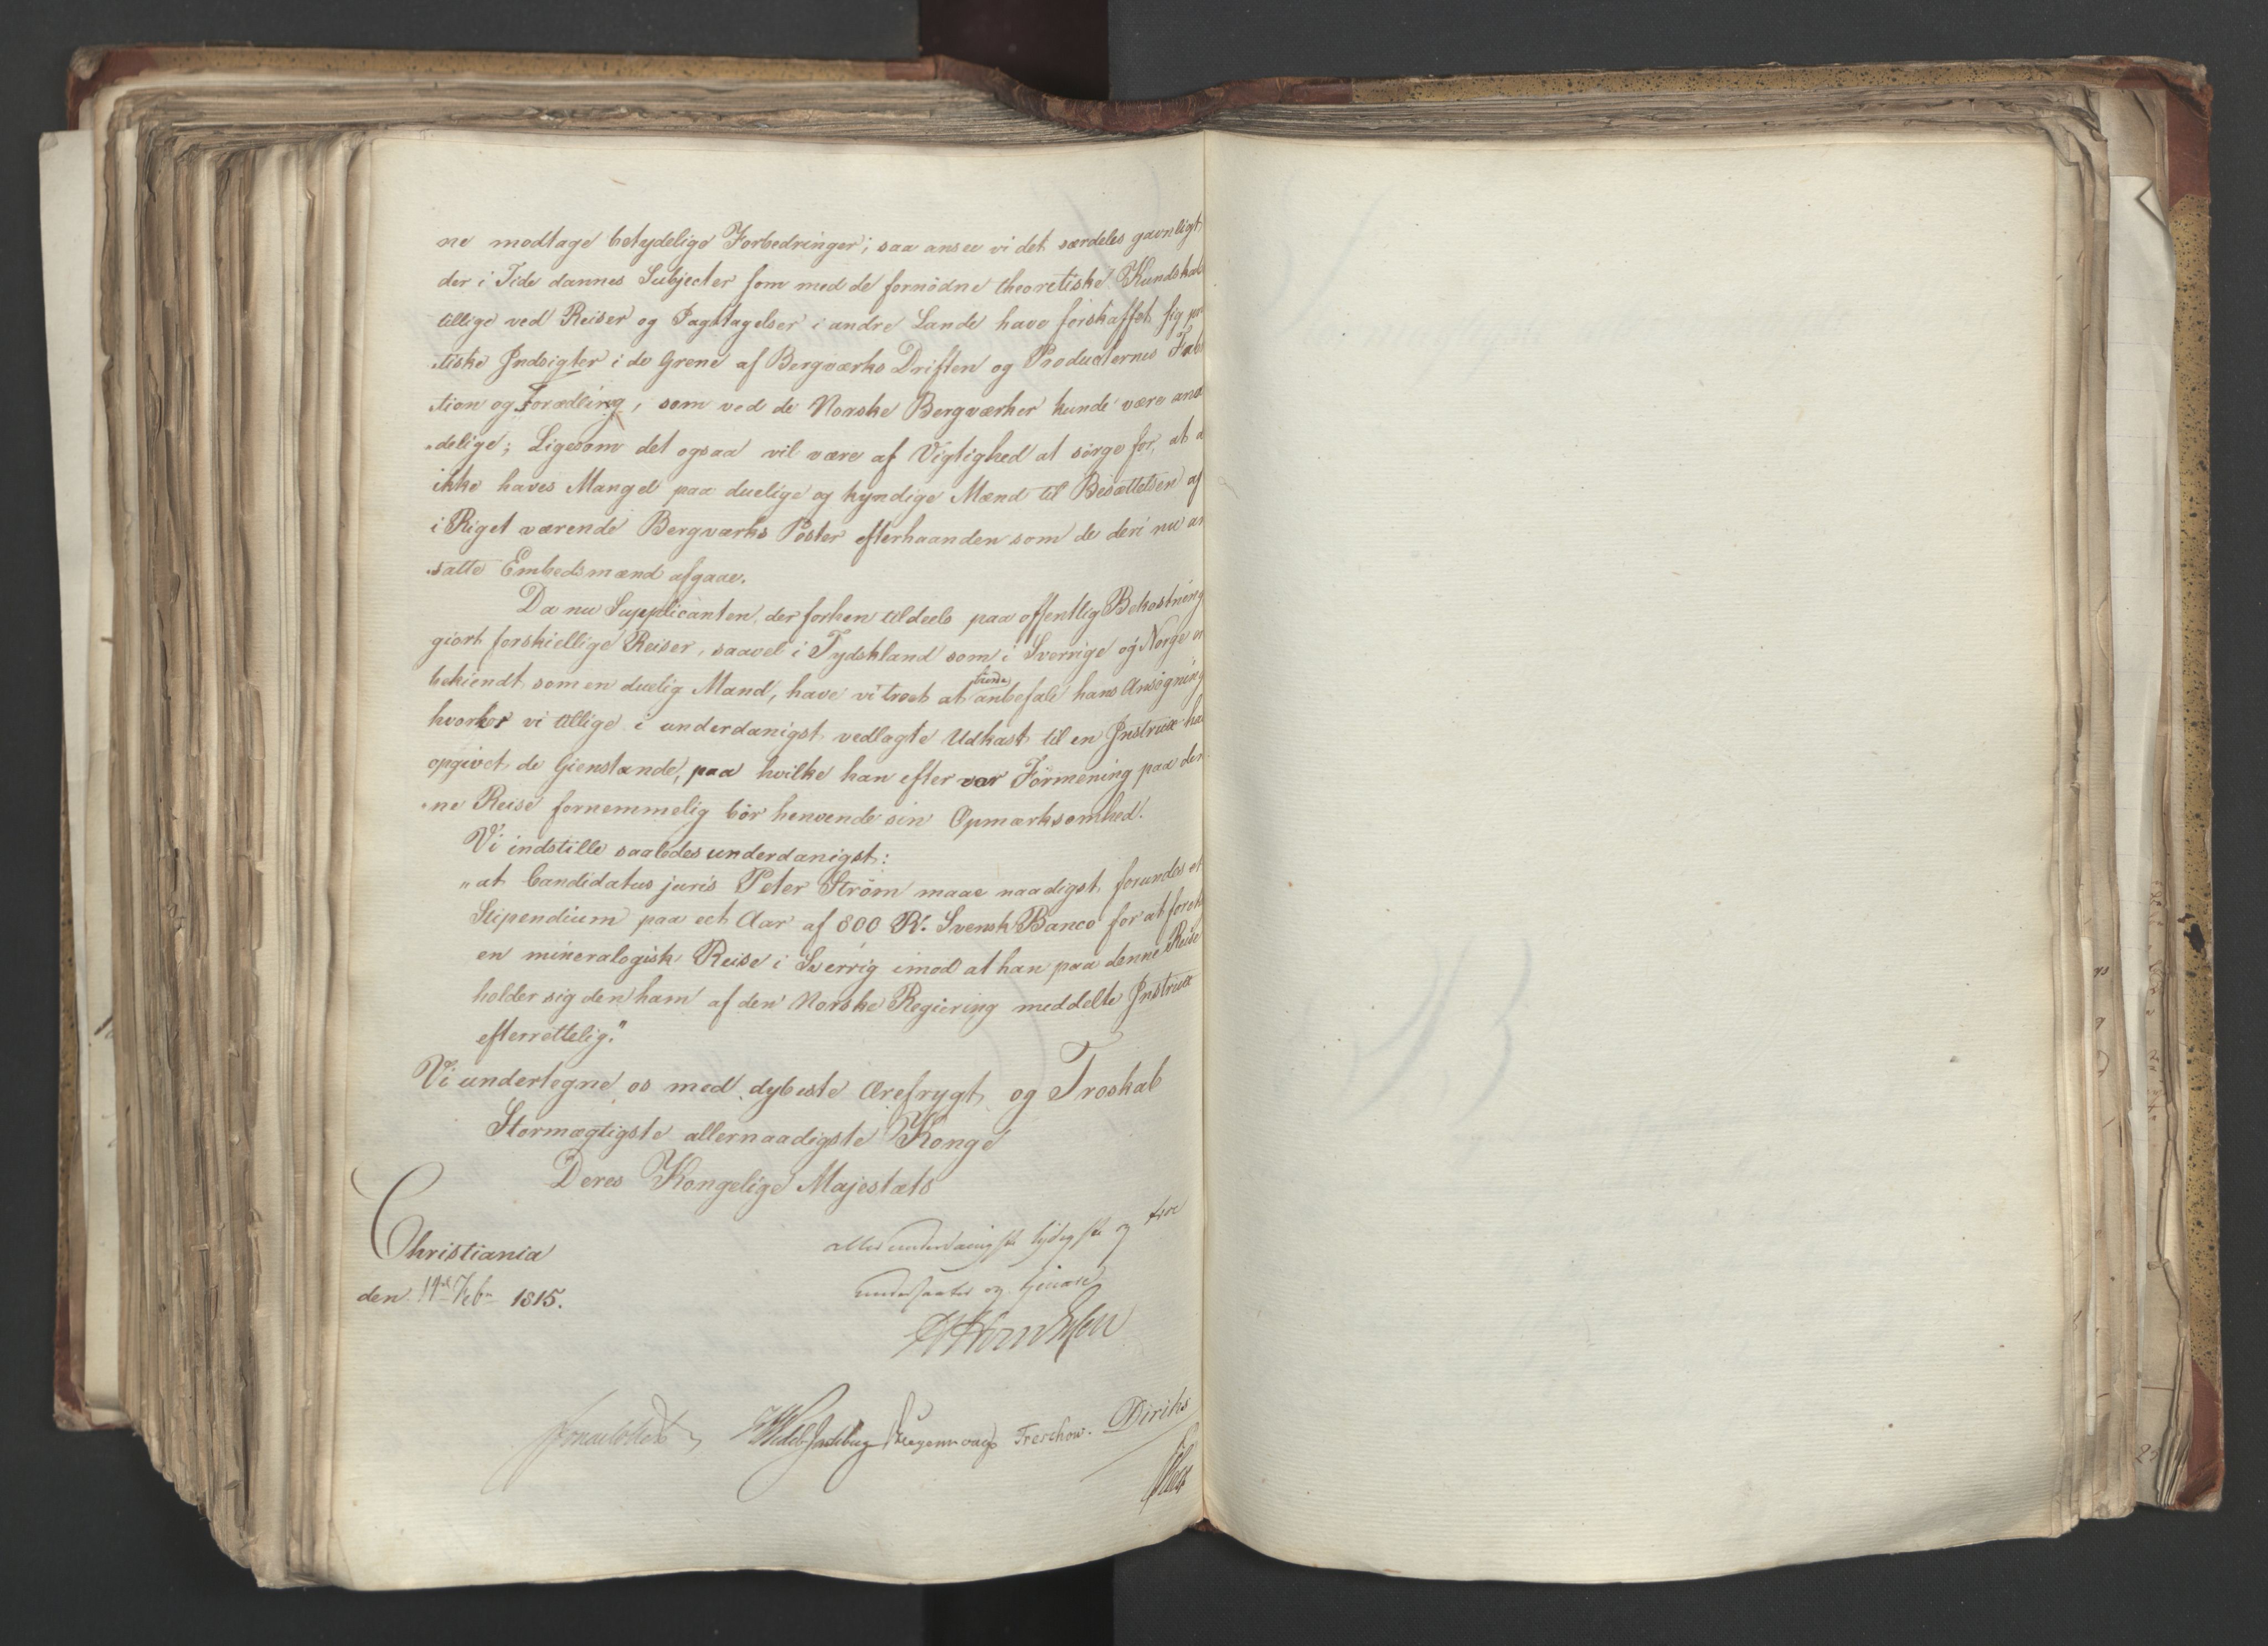 ne modtage betydelige Forbedringer; saa ansee vi det særdeles gavnligt
der i Tide dannes Subjecter som med de fornödne theoretiske Kundskab
tillige ved Reiser og Iagttagelser i andre Lande have forskaffet sig pr
„tiske Indsigter i de Grene af Bergværks Driften og Producternes Fab
„tion og Forædling, som ved de Norske Bergværker kunde være anv
„delige; Ligesom det ogsaa vil være af Vigtighed at sörge for, at d
ikke haves Mangel paa duelige og kyndige Mænd til Besættelsen af
i Riget værende Bergværks Poster efterhaanden som de deri nu an
„satte Embedsmænd afgaae.
Da nu Supplicanten, der forhen tildeels paa offentlig Bekostning
giort forskiellige Reiser, saavel i Tydskland som i Sverrige og Norge er
bekiendt som en duelig Mand, have vi troet at burde anbefale hans Ansögning
hvorhos vi tillige i underdanigst vedlagte Udkast til en Instrux ha
opgivet de Gienstande, paa hvilke han efter vor Formening paa den
„ne Reise fornemmelig bör henvende sin Opmærksomhed.
Vi indstille saaledes underdanigst:
„at Candidatus juris Peter Ström maae naadigst forundes et
Stipendium paa eet Aar af 800 Rd. Svensk Banco for at foret
en mineralogisk Reise i Sverrig imod at han paa denne Reise
holder sig den ham af den Norske Regiering meddelte Instrux
efterrettelig."
Vi undertegne os med dybeste Ærefrygt og Troskab
Stormægtigste allernaadigste Konge
Deres Kongelige Majestæts
Christiania
den 14de Febr 1815.
allerunderdanigste lydigste og troe
undersaatter og tienere
Treschow. Diriks